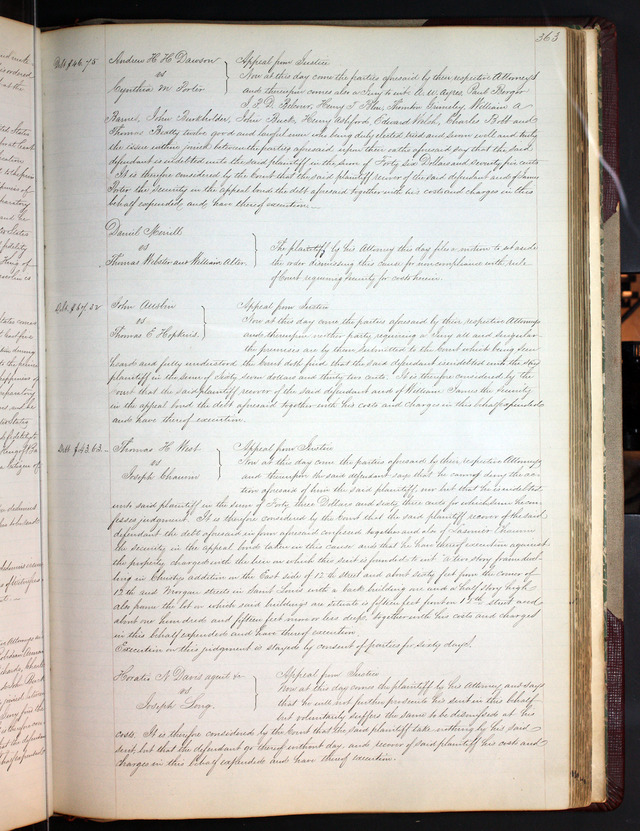 363
Debt $46.75 Andrew H H Dawson Appeal from Justice
vs Now at this day come the parties aforesaid by their respective Attorneys
Cynthia M Porter and thereupon comes also a Jury to wit A. W. Ayres, Paul
William A
John Burkholder, John Buck, Henry Ashford, Edward Welsh, Charles and
Thomas Beatty twelve good and lawful men who being duly elected tried and sworn well and truly
the issue within joined between the parties aforesaid upon their oaths aforesaid say that the said
defendant is indebted unto the said plaintiff in the sum of Forty six Dollars and seventy five cents
It is therefore considered by the Court that the said plaintiff recover of the said defendant and of James
Porter the security in the appeal bond the debt aforesaid together with his costs and charges in this
behalf expended and have thereof execution.
Daniel Merrill
vs The plaintiff by his Attorney this day files a motion to set aside
Thomas Webster and William Allen the order dismissing this cause for noncompliance with rule
of Court requiring security for costs herein.
Debt $67.32 John Austin Appeal from Justice
vs Now at this day come the parties aforesaid by their respective Attorneys
Thomas E Hopkins and thereupon neither party requiring a Jury all and singular
the premises are by them submitted to the Court which being seen
heard and fully understood the Court doth find that the said defendant is indebted unto the said
plaintiff in the sum of Sixty seven dollars and thirty two cents. It is therefore considered by the
Court that the said plaintiff recover of the said defendant and of William James the security
in the appeal bond the debt aforesaid together with his costs and charges in this behalf expended
and have thereof execution.
Debt $43.63 Thomas H West Appeal from Justice
vs Now at this day come the parties aforesaid by their respective Attorneys
Joseph and thereupon the said defendant says that he cannot deny the ac-
tion aforesaid of him the said plaintiff, nor but that he is indebted
unto said plaintiff in the sum of Forty three Dollars and sixty three cents for which sum he con-
fesses judgment. It is therefore considered by the Court that the said plaintiff recover of the said
defendant the debt aforesaid in form aforesaid confessed together and also of
the security in the appeal bond taken in this cause and that he have thereof execution against
the property charged with the lien on which this suit is founded, to wit "a two story frame dwel-
ling in Christy's addition on the East side of 12th street and about sixty feet from the corner of
12th and Morgan streets in Saint Louis with a back building one and a half story high
also frame the lot on which said buildings are situate is fifteen feet front on 12th street and
about one hundred and fifteen feet more or less deep," together with his costs and charges
in this behalf expended and have thereof execution.
Execution on this judgment is stayed by consent of parties for sixty days.
Horatio N Davis agent &c Appeal from Justice
vs Now at this day comes the plaintiff by his Attorney and says
Joseph Long. that he will not further prosecute his suit in this behalf,
but voluntarily suffers the same to be dismissed at his
costs. It is therefore considered by the Court that the said plaintiff take nothing by his said
suit, but that the defendant go thereof without day and recover of said plaintiff his costs and
charges in this behalf expended and have thereof execution.